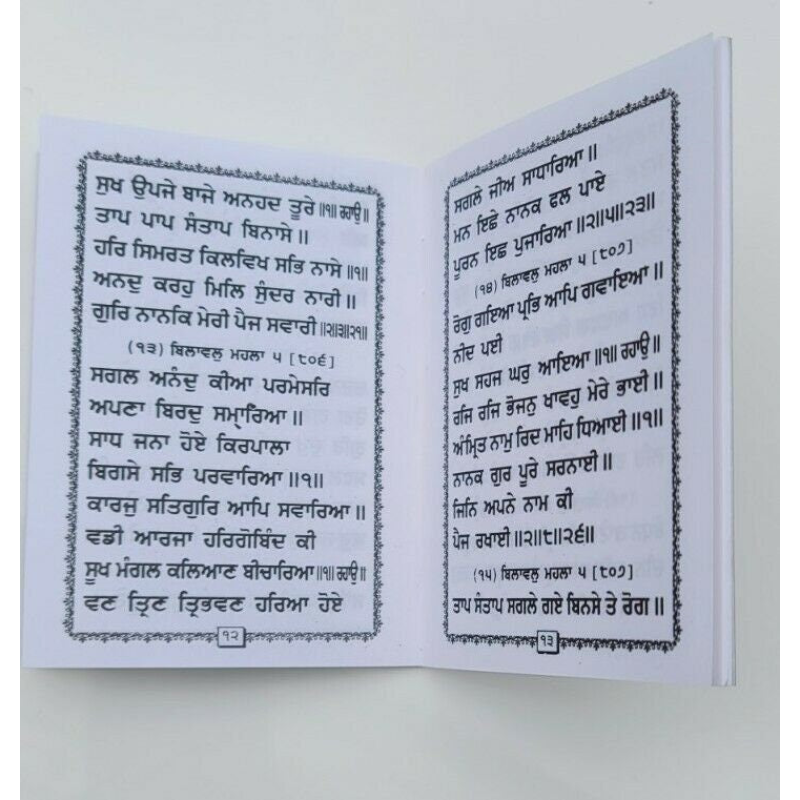 ਸੁਖ ਉਪਜੇ ਬਾਜੇ ਅਨਹਦ ਤੂਰੇ ॥੧॥ ਰਹਾਉ॥
ਤਾਪ ਪਾਪ ਸੰਤਾਪ ਬਿਨਾਸੇ ॥
ਹਰਿ ਸਿਮਰਤ ਕਿਲਵਿਖ ਸਭਿ ਨਾਸੇ ॥੧॥
ਅਨਦੁ ਕਰਹੁ ਮਿਲਿ ਸੁੰਦਰ ਨਾਰੀ ॥
ਗੁਰਿ ਨਾਨਕਿ ਮੇਰੀ ਪੈਜ ਸਵਾਰੀ ॥੨॥੩॥੨੧॥
(੧੩) ਬਿਲਾਵਲੁ ਮਹਲਾ ੫ [੮੦੬]
ਸਗਲ ਅਨੰਦੁ ਕੀਆ ਪਰਮੇਸਰਿ
ਅਪਣਾ ਬਿਰਦੁ ਸਮ੍ਹਾਰਿਆ ॥
ਸਾਧ ਜਨਾ ਹੋਏ ਕਿਰਪਾਲਾ
ਬਿਗਸੇ ਸਭਿ ਪਰਵਾਰਿਆ ॥੧॥
ਕਾਰਜੁ ਸਤਿਗੁਰਿ ਆਪਿ ਸਵਾਰਿਆ ॥
ਵਡੀ ਆਰਜਾ ਹਰਿਗੋਬਿੰਦ ਕੀ
ਸੂਖ ਮੰਗਲ ਕਲਿਆਣ ਬੀਚਾਰਿਆ ॥੧॥ ਰਹਾਉ॥
ਵਣ ਤ੍ਰਿਣ ਤ੍ਰਿਭਵਣ ਹਰਿਆ ਹੋਏ
੧੨
ਸਗਲੇ ਜੀਅ ਸਾਧਾਰਿਆ ॥
ਮਨ ਇਛੇ ਨਾਨਕ ਫਲ ਪਾਏ
ਪੂਰਨ ਇਛ ਪੁਜਾਰਿਆ ॥੨॥੫॥੨੩॥
(੧੪) ਬਿਲਾਵਲੁ ਮਹਲਾ ੫ [੮੦੭]
ਰੋਗੁ ਗਇਆ ਪ੍ਰਭਿ ਆਪਿ ਗਵਾਇਆ ॥
ਨੀਦ ਪਈ
ਸੁਖ ਸਹਜ ਘਰੁ ਆਇਆ ॥੧॥ ਰਹਾਉ॥
ਰਜਿ ਰਜਿ ਭੋਜਨੁ ਖਾਵਹੁ ਮੇਰੇ ਭਾਈ ॥
ਅੰਮ੍ਰਿਤ ਨਾਮੁ ਰਿਦ ਮਾਹਿ ਧਿਆਈ ॥੧॥
ਨਾਨਕ ਗੁਰ ਪੂਰੇ ਸਰਨਾਈ ॥
ਜਿਨਿ ਅਪਨੇ ਨਾਮ ਕੀ
ਪੈਜ ਰਖਾਈ ॥੨॥੮॥੨੬॥
(੧੫) ਬਿਲਾਵਲੁ ਮਹਲਾ ੫ [੮੦੭]
ਤਾਪ ਸੰਤਾਪ ਸਗਲੇ ਗਏ ਬਿਨਸੇ ਤੇ ਰੋਗ ॥
੧੩